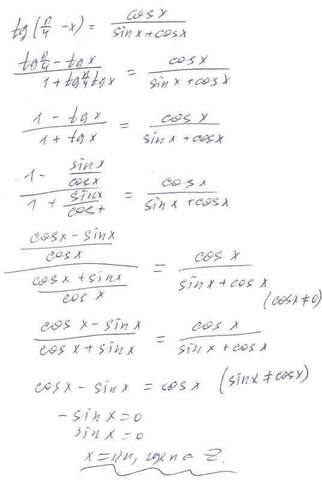 tg(π/4 - x) = cosx/(sinx+cosx)
(tgπ/4 - tgx)/(1+tgπ/4 tgx) = cosx/(sinx+cosx)
(1 - tgx)/(1 + tgx) = cosx/(sinx+cosx)
(1 - sinx/cosx)/(1 + sinx/cosx) = cosx/(sinx+cosx)
((cosx - sinx)/cosx)/((cosx + sinx)/cosx) = cosx/(sinx+cosx)
(cosx≠0)
(cosx - sinx)/(cosx + sinx) = cosx/(sinx + cosx)
cosx - sinx = cosx (sinx≠cosx)
-sinx = 0
sinx = 0
x = πn, где n ∈ Z.